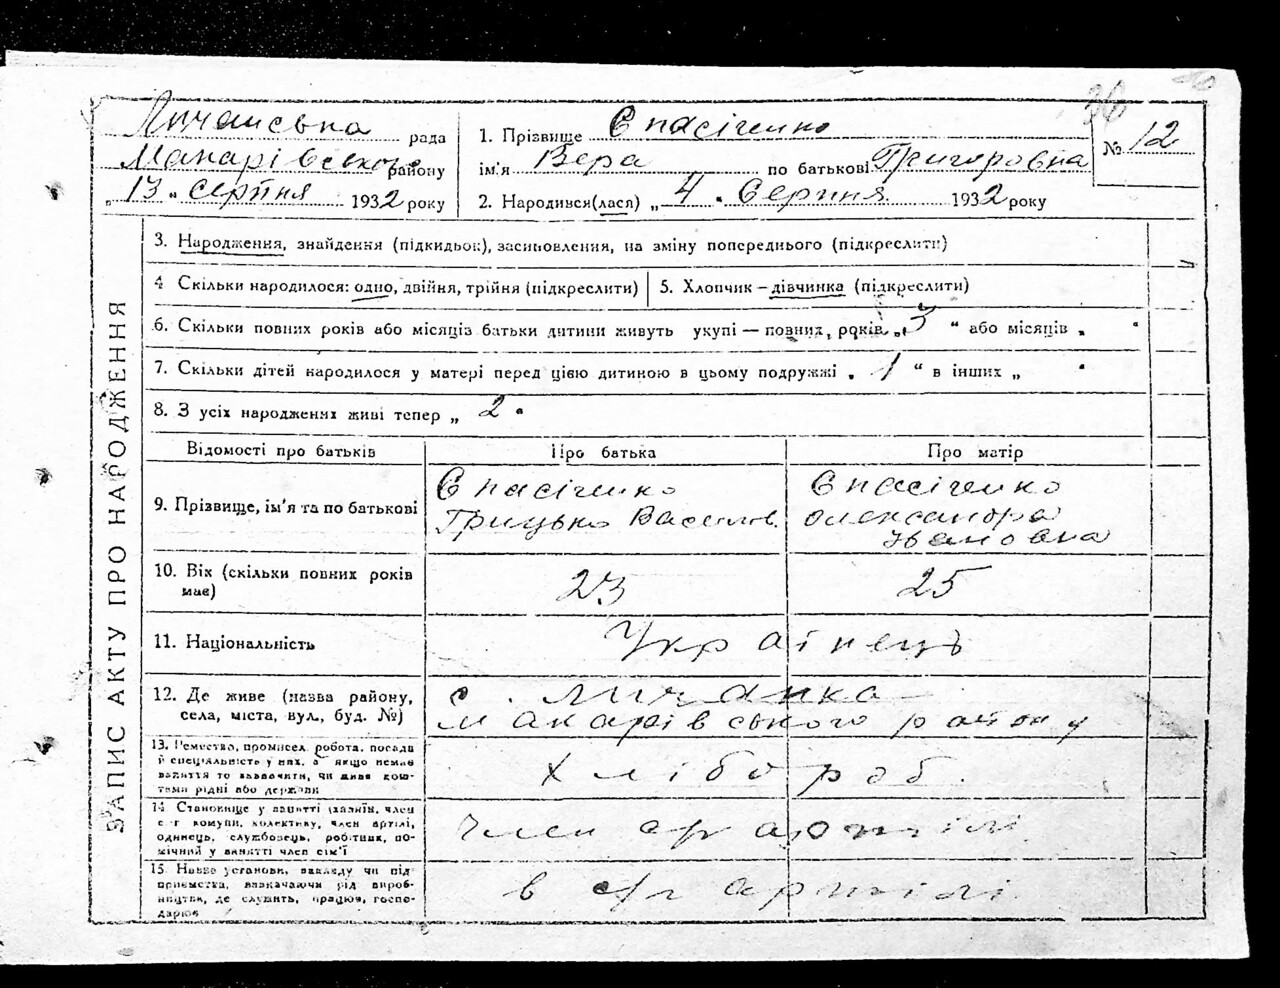 36
Личанська рада
Макарівського району
„13“ серпня 1932 року
1. Прізвище Спасіченко
ім'я Вера по батькові Григоровна
2. Народився(лася) „4“ Серпня 1932 року
№ 12
ЗАПИС АКТУ ПРО НАРОДЖЕННЯ
3. Народження, знайдення (підкидьок), засиновлення, на зміну попереднього (підкреслити)
4 Скільки народилося: одно, двійня, трійня (підкреслити)
5. Хлопчик – дівчинка (підкреслити)
6. Скільки повних років або місяців батьки дитини живуть укупі — повних років „3“ або місяців „ “
7. Скільки дітей народилося у матері перед цією дитиною в цьому подружжі „1“ в інших „ “
8. З усіх народженях живі тепер „2“
Відомості про батьків
Про батька
Про матір
9. Прізвище, ім'я та по батькові
Спасіченко
Грицько Василов.
Спасіченко
Олександра
Івановна
10. Вік (скільки повних років
має)
23
25
11. Національність
Українець
12. Де живе (назва району,
села, міста, вул., буд. №)
с. Личанка
Макарівського району
13. Ремество, промисел, робота, посада
й спеціяльність у них, а якщо немає
заняття то зазначити, чи живе кош-
тами рідні або держави
Хлібороб
14 Становище у занятті (хазяїн, член
с-г комуни, колективу, член артілі,
одинець, службовець, робітник, по-
мічний у занятті член сім'ї
член с/г артілі
15 Назва установи, закладу чи під-
приємства, визначаючи рід вироб-
ництва, де служить, працює, госпо-
дарює
в с/г артілі